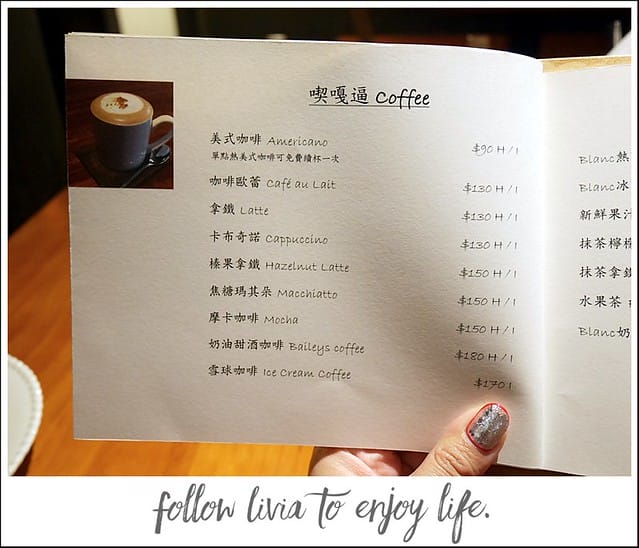 喫嘎逼 Coffee
美式咖啡 Americano $90 H / I
單點熱美式咖啡可免費續杯一次
咖啡歐蕾 Café au Lait $130 H / I
拿鐵 Latte $130 H / I
卡布奇諾 Cappuccino $130 H / I
榛果拿鐵 Hazelnut Latte $150 H / I
焦糖瑪其朵 Macchiatto $150 H / I
摩卡咖啡 Mocha $150 H / I
奶油甜酒咖啡 Baileys coffee $180 H / I
雪球咖啡 Ice Cream Coffee $170 I
Blanc熱
Blanc冰
新鮮果汁
抹茶檸檬
抹茶拿鐵
水果茶
Blanc奶
follow livia to enjoy life.